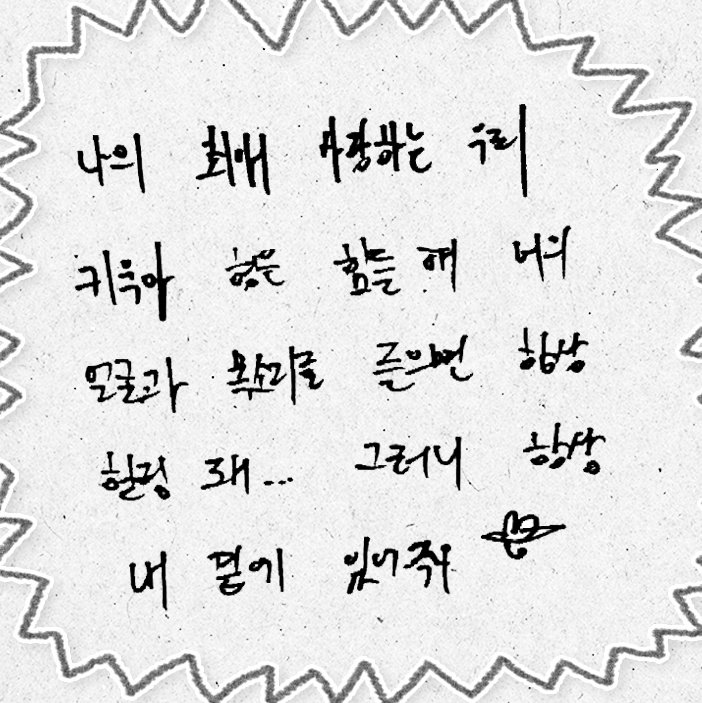 나의 최애 사랑하는 우리
키욱아 형은 힘들 때 너의
얼굴과 목소리를 들으면 항상
힐링 돼... 그러니 항상
내 곁에 있어줘